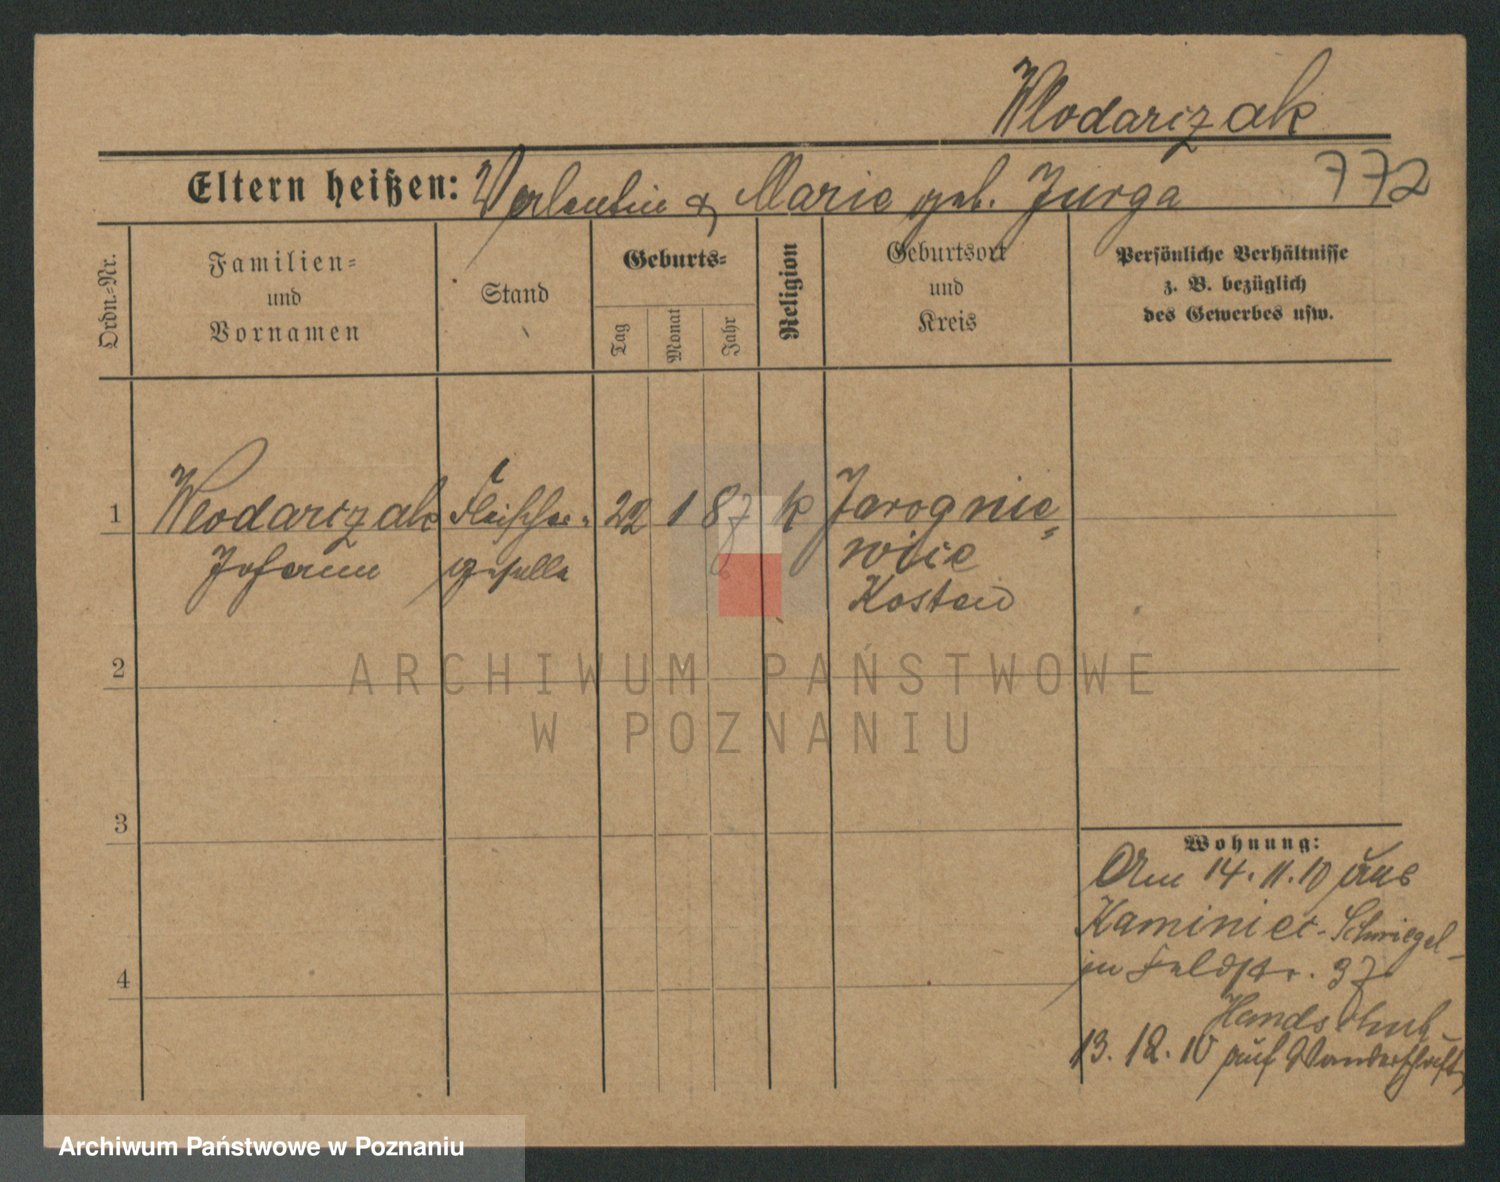 Wlodarczak
772
Eltern heißen: Valentin & Marie geb. Jurga
Ordn.-Nr.
Familien-
und
Vornamen
Stand
Geburts-
Tag
Monat
Jahr
Religion
Geburtsort
und
Kreis
Persönliche Verhältnisse
z. B. bezüglich
des Gewerbes usw.
1 Wlodarczak Fleischer- 22 1 87 k Jarognie-
Johann geselle wice
Kosten
2
3
4
Wohnung:
Am 14.11.10 aus
Kaminiec-Schmiegel-
in Feldstr. 37
Handschuh-
13.12.10 auf Wanderschaft
ARCHIWUM PAŃSTWOWE
W POZNANIU
Archiwum Państwowe w Poznaniu